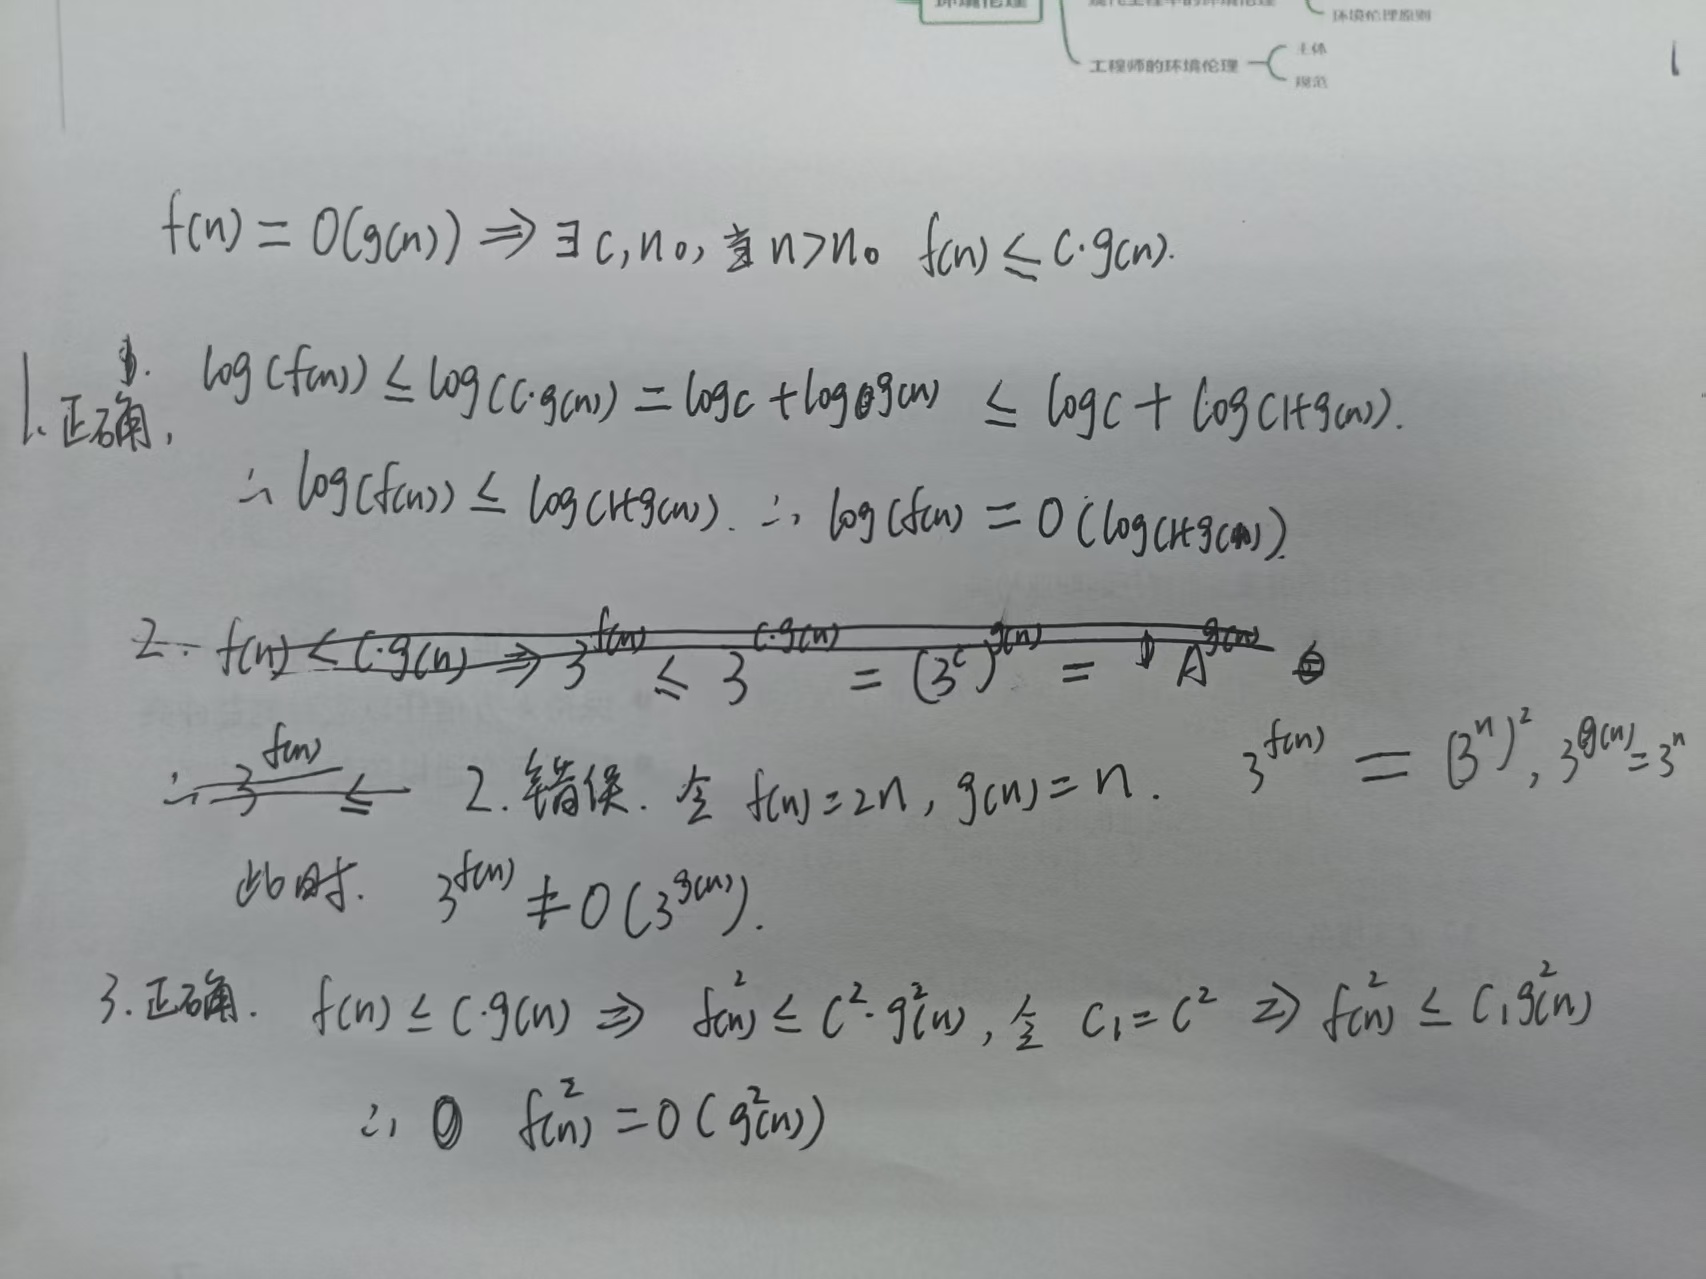 环境伦理
现代工程中的环境伦理
环境伦理原则
工程师的环境伦理
主体
规范
f(n) = O(g(n)) ⇒ ∃ c, n₀, 当 n>n₀ f(n) ≤ c·g(n).
1. 正确, log(f(n)) ≤ log(c·g(n)) = logc + log g(n) ≤ logc + log(1+g(n)).
∴ log(f(n)) ≤ log(1+g(n)). ∴ log(f(n) = O(log(1+g(n)).
2. f(n) ≤ c·g(n) ⇒ 3^f(n) ≤ 3^c·g(n) = (3^c)^g(n) = A^g(n)
∴ 3^f(n) ≤ 2. 错误. 令 f(n)=2n, g(n)=n. 3^f(n) = (3^n)², 3^g(n)=3^n
此时. 3^f(n) ≠ O(3^g(n)).
3. 正确. f(n) ≤ c·g(n) ⇒ f²(n) ≤ c²·g²(n), 令 c₁=c² ⇒ f²(n) ≤ c₁g²(n)
∴ f²(n) = O(g²(n))